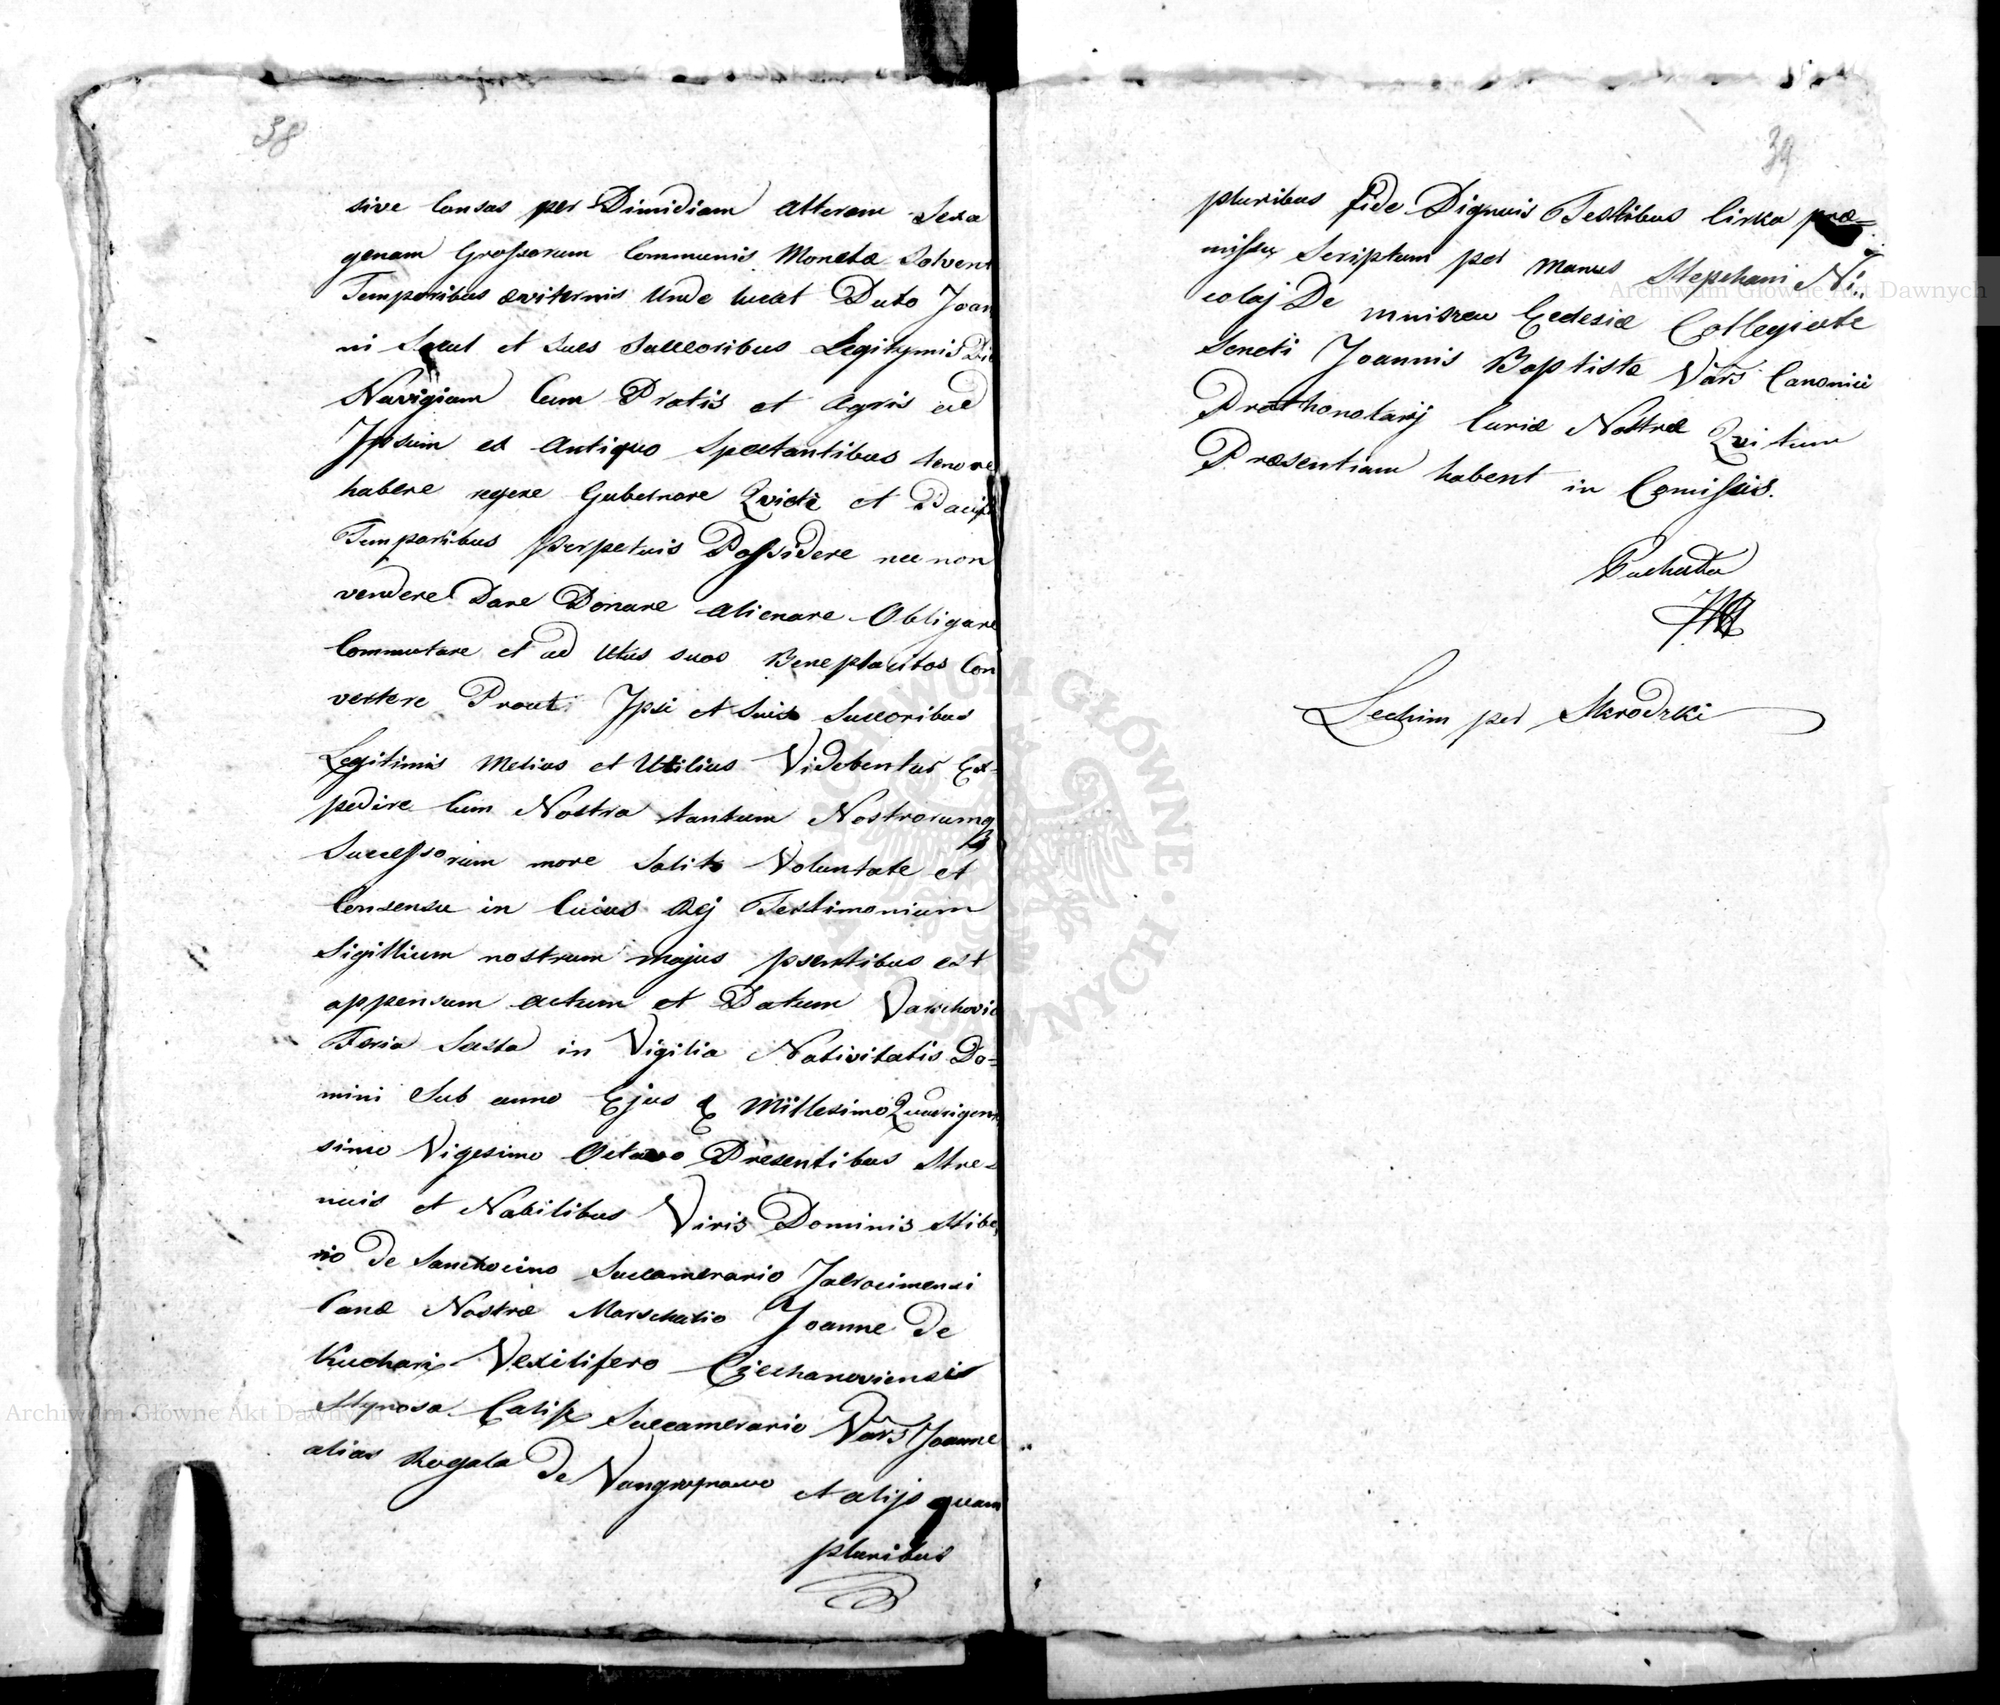 38
sive Consas per Dimidiam Alteram Sexa
genam Grossorum Communis Moneta Solvent
Temporibus æviternis Unde lucat Duto Joan
ni et Sues Succoribus Legitymis
Navigium Cum Pratis et Agris ad
Ipsum ex Antiquo Spectantibus tenore
habere regere Gubernare Qviete et Pacif
Temporibus perpetuis Possidere nec non
vendere Dare Donare alienare Obligare
Commutare et ad Usus suos Beneplacitos Con
vertere Prout Ipsi et Suis Succoribus
Legitimis Melius et Utilius Videbentur Ex-
pedire Cum Nostra tantum Nostrorumq
Successorum more Solito Voluntate et
Consensu in Cuius Rej Testimonium
Sigillium nostrum majus psentibus est
appensum actum et Datum Varschovic
Feria Sexta in Vigilia Nativitatis Do=
mini Sub anno Ejus Millesimo Quadrigent
simo Vigesimo Octavo Presentibus Stre-
nuis et Nobilibus Viris Dominis Stibo,
rio de Sanchocino Succamerario Zakrocimensi
Canæ Nostræ Marschalio Joanne De
Kuchari Vexilifero Ciechanoviensis
Mynosa Succamerario Vars Joanne
alias Rogala De et alijs quam
pluribus
39
pluribus fide Dignuis Testibus Cirka præ=
missa Scriptum per manus Stepchani Ni=
colaj De mniszeu Ecclesiæ Collegiate
Sancti Joannis Baptista Vars Canonici
Prothonotarij Curiæ Nostræ Qvi tum
Præsentiam habent in Comissis.
Pachuta
Lechim per Skrodzki
Archiwum Główne Akt Dawnych
Archiwum Główne Akt Dawnych
ARCHIWUM GŁÓWNE AKT DAWNYCH